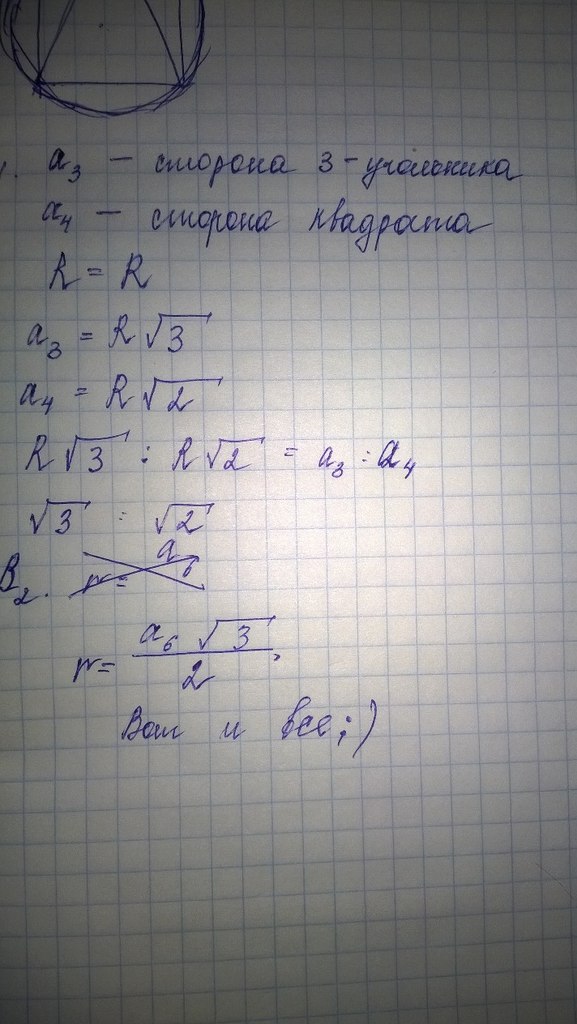 1. a₃ – сторона 3-угольника
a₄ – сторона квадрата
R = R
a₃ = R√3
a₄ = R√2
R√3 : R√2 = a₃ : a₄
√3 : √2
В2. r = a₆
r = a₆√3 / 2
Вот и все ;)